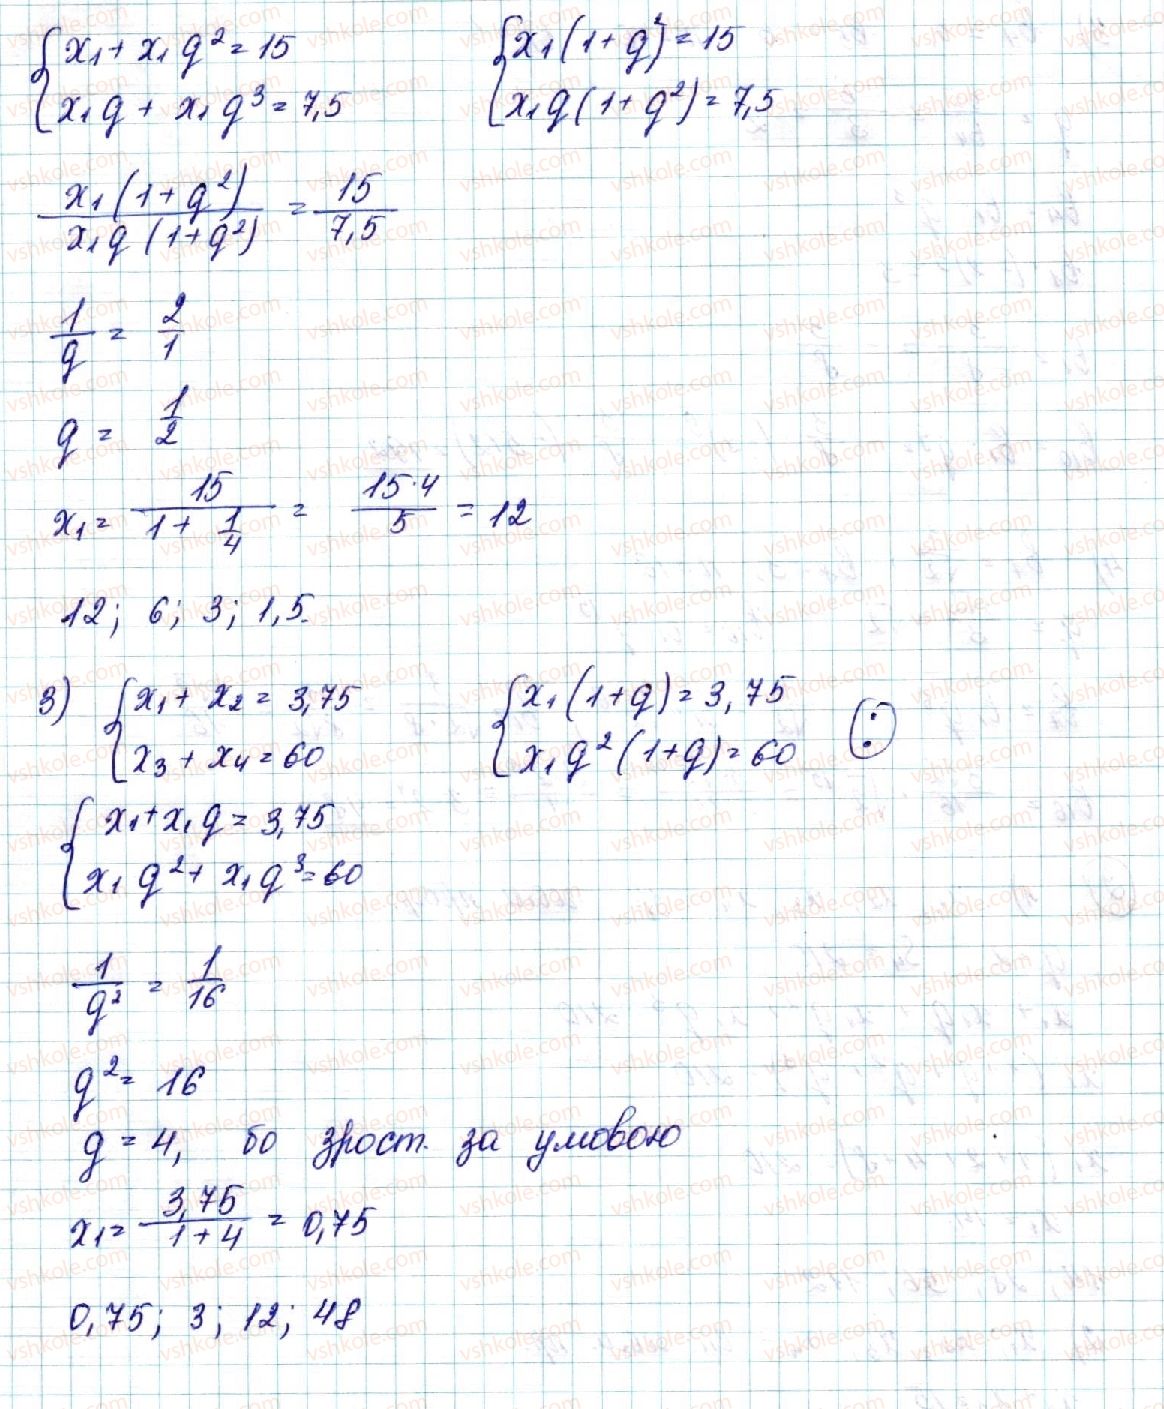 {x₁ + x₁q² = 15    {x₁(1+q²) = 15
{x₁q + x₁q³ = 7,5    {x₁q(1+q²) = 7,5
x₁(1+q²)/x₁q(1+q²) = 15/7,5
1/q = 2/1
q = 1/2
x₁ = 15/(1 + 1/4) = 15·4/5 = 12
12; 6; 3; 1,5.
3) {x₁ + x₂ = 3,75    {x₁(1+q) = 3,75
{x₃ + x₄ = 60    {x₁q²(1+q) = 60    (:)
{x₁ + x₁q = 3,75
{x₁q² + x₁q³ = 60
1/q² = 1/16
q² = 16
q = 4, бо зрост. за умовою
x₁ = 3,75/(1+4) = 0,75
0,75; 3; 12; 48